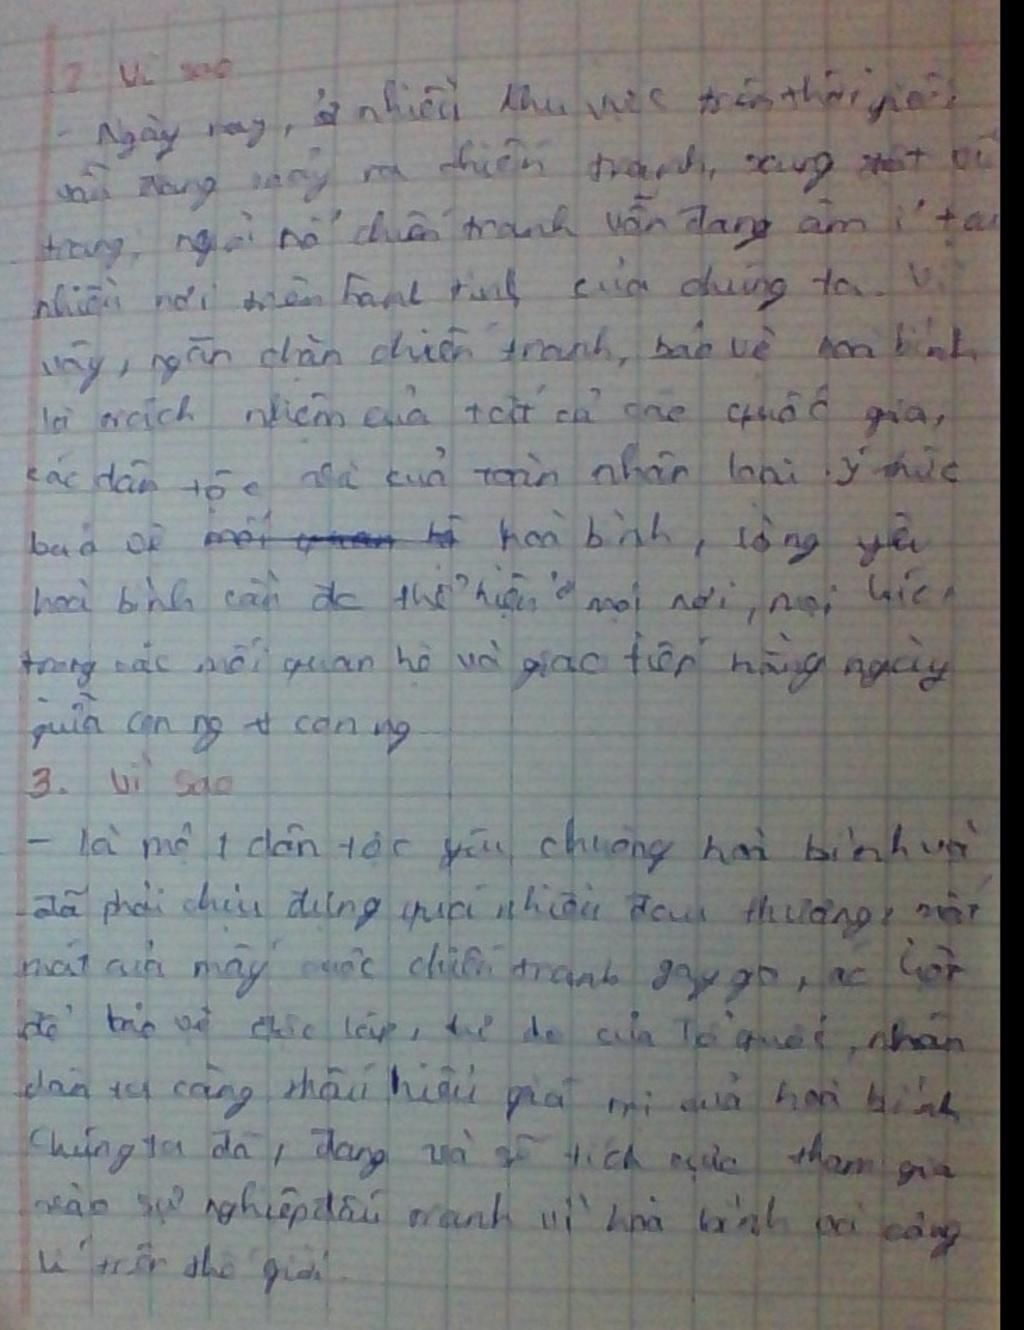 2 Vì sao
- Ngày nay, ở nhiều khu vực trên thế giới
vẫn đang xảy ra chiến tranh, xung đột vũ
trang, ngòi nổ chiến tranh vẫn đang âm ỉ tại
nhiều nơi trên hành tinh của chúng ta. Vì
vậy, ngăn chặn chiến tranh, bảo vệ hoà bình
là trách nhiệm của tất cả các quốc gia,
các dân tộc và của toàn nhân loại. Ý thức
bảo vệ hoà bình, lòng yêu
hoà bình cần đc thể hiện ở mọi nơi, mọi lúc,
trong các mối quan hệ và giao tiếp hằng ngày
giữa con ng vs con ng
3. Vì sao
- là một dân tộc yêu chuộng hoà bình và
đã phải chịu đựng quá nhiều đau thương, mất
mát của mấy cuộc chiến tranh gay go, ác liệt
để bảo vệ độc lập, tự do của Tổ quốc, nhân
dân ta càng thấu hiểu giá trị của hoà bình
Chúng ta đã, đang và sẽ tích cực tham gia
vào sự nghiệp đấu tranh vì hoà bình và công
lí trên thế giới.